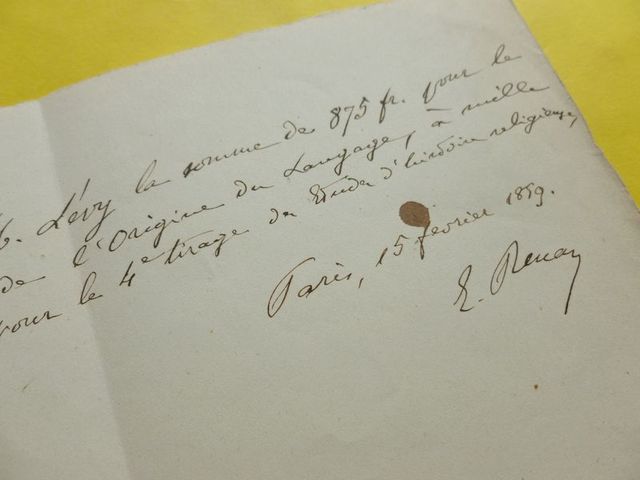 Lévy la somme de 875 fr. pour le
de l'Origine du Langage, à mille
pour le 4e tirage des Etudes d'histoire religieuse,
Paris, 15 février 1859.
E. Renan